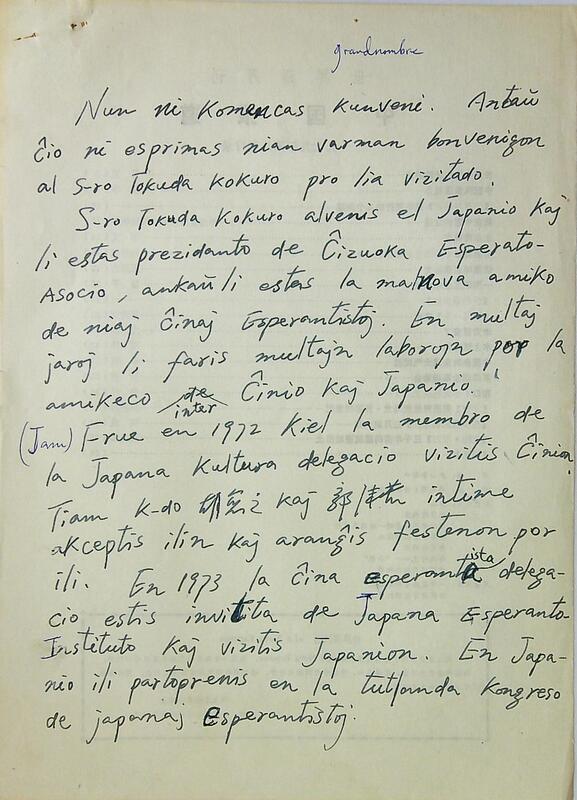 grandnombre
Nun ni komencas kunveni. Antaŭ
ĉio ni esprimas nian varman bonvenigon
al S-ro Tokuda Kokuro pro lia vizitado.
S-ro Tokuda Kokuro alvenis el Japanio kaj
li estas prezidanto de Ĉizuoka Esperato-
Asocio, ankaŭ li estas la malnova amiko
de niaj ĉinaj Esperantistoj. En multaj
jaroj li faris multajn laborojn por la
amikeco de inter Ĉinio kaj Japanio.
(Jam) Frue en 1972 kiel la membro de
la Japana Kultura delegacio vizitis Ĉinion.
Tiam K-do 胡愈之 kaj 郭沫若 intime
akceptis ilin kaj aranĝis festenon por
ili. En 1973 la ĉina esperantista delega-
cio estis invitita de Japana Esperanto-
Instituto kaj vizitis Japanion. En Japa-
nio ili partoprenis en la tutlanda Kongreso
de japanaj esperantistoj.